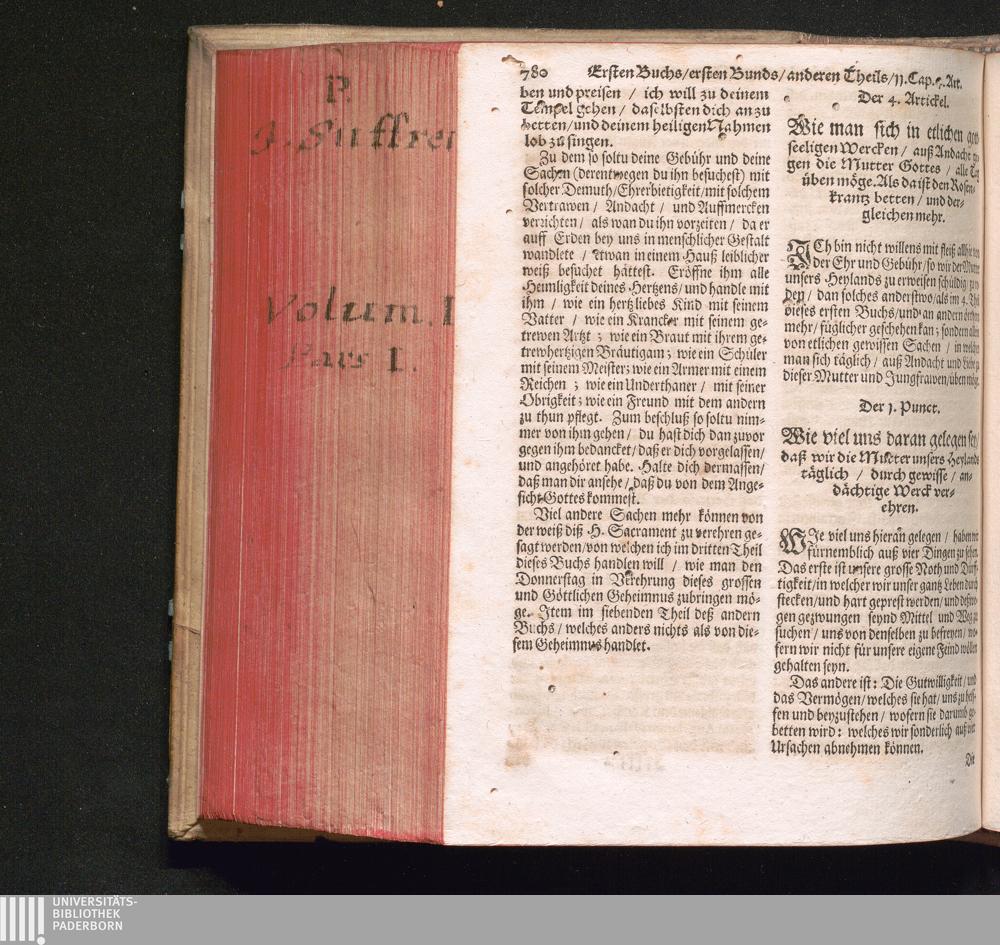 P.
J. Suffre
Volum. I
Pars I.
780 Ersten Buchs/ersten Bunds/anderen Theils/11.Cap.4.Art.
ben und preisen / ich will zu deinem
Tempel gehen / daselbsten dich anzu
betten/und deinem heiligen Nahmen
lob zu singen.
Zu dem so soltu deine Gebühr und deine
Sachen (derentwegen du ihn besuchest) mit
solcher Demuth/Ehrerbietigkeit/mit solchem
Vertrawen / Andacht / und Auffmercken
verzichten / als wan du ihn vorzeiten / da er
auff Erden bey uns in menschlicher Gestalt
wandlete / etwan in einem Hauß leiblicher
weiß besuchet hättest. Eröffne ihm alle
Heimligkeit deines Hertzens/und handle mit
ihm / wie ein hertzliebes Kind mit seinem
Vatter / wie ein Krancker mit seinem ge-
trewen Artzt ; wie ein Braut mit ihrem ge-
trewhertzigen Bräutigam; wie ein Schüler
mit seinem Meister; wie ein Armer mit einem
Reichen ; wie ein Underthaner / mit seiner
Obrigkeit; wie ein Freund mit dem andern
zu thun pflegt. Zum beschluß so soltu nim-
mer von ihm gehen / du hast dich dan zuvor
gegen ihm bedancket/daß er dich vorgelassen/
und angehöret habe. Halte dich dermassen/
daß man dir ansehe / daß du von dem Ange-
sicht Gottes kommest.
Viel andere Sachen mehr können von
der weiß diß H. Sacrament zu verehren ge-
sagt werden/von welchen ich im dritten Theil
dieses Buchs handlen will / wie man den
Donnerstag in Verehrung dieses grossen
und Göttlichen Geheimnus zubringen mö-
ge. Item im siebenden Theil deß andern
Buchs / welches anders nichts als von die-
sem Geheimnus handlet.
Der 4. Artickel.
Wie man sich in etlichen
seeligen Wercken / auß Andacht
gen die Mutter Gottes / alle Tag
üben möge. Als da ist den Rosen-
krantz betten / und der-
gleichen mehr.
ICh bin nicht willens mit fleiß allhie von
der Ehr und Gebühr/so wir der Mutter
unsers Heylands zu erweisen schuldig
den / dan solches anderstwo/als im 4. Theil
dieses ersten Buchs/und an andern
mehr/füglicher geschehen kan; sondern allein
von etlichen gewissen Sachen / in welchen
man sich täglich / auß Andacht und Liebe zu
dieser Mutter und Jungfrawen/üben möge.
Der 1. Punct.
Wie viel uns daran gelegen sey/
daß wir die Mutter unsers Heylands
täglich / durch gewisse / an-
dächtige Werck ver-
ehren.
WIe viel uns hieran gelegen / haben wir
fürnemblich auß vier Dingen zu sehen.
Das erste ist unsere grosse Noth und Dürf-
tigkeit/in welcher wir unser gantz Leben durch
stecken/und hart geprest werden/und
gen gezwungen seynd Mittel und Weg zu
suchen / uns von denselben zu befreyen/ wo-
fern wir nicht für unsere eigene Feind wöllen
gehalten seyn.
Das andere ist : Die Gutwilligkeit / und
das Vermögen/welches sie hat/ uns zu helf-
fen und beyzustehen / wofern sie darumb ge-
betten wird : welches wir sonderlich auß vier
Ursachen abnehmen können.
Die
UNIVERSITÄTS-
BIBLIOTHEK
PADERBORN